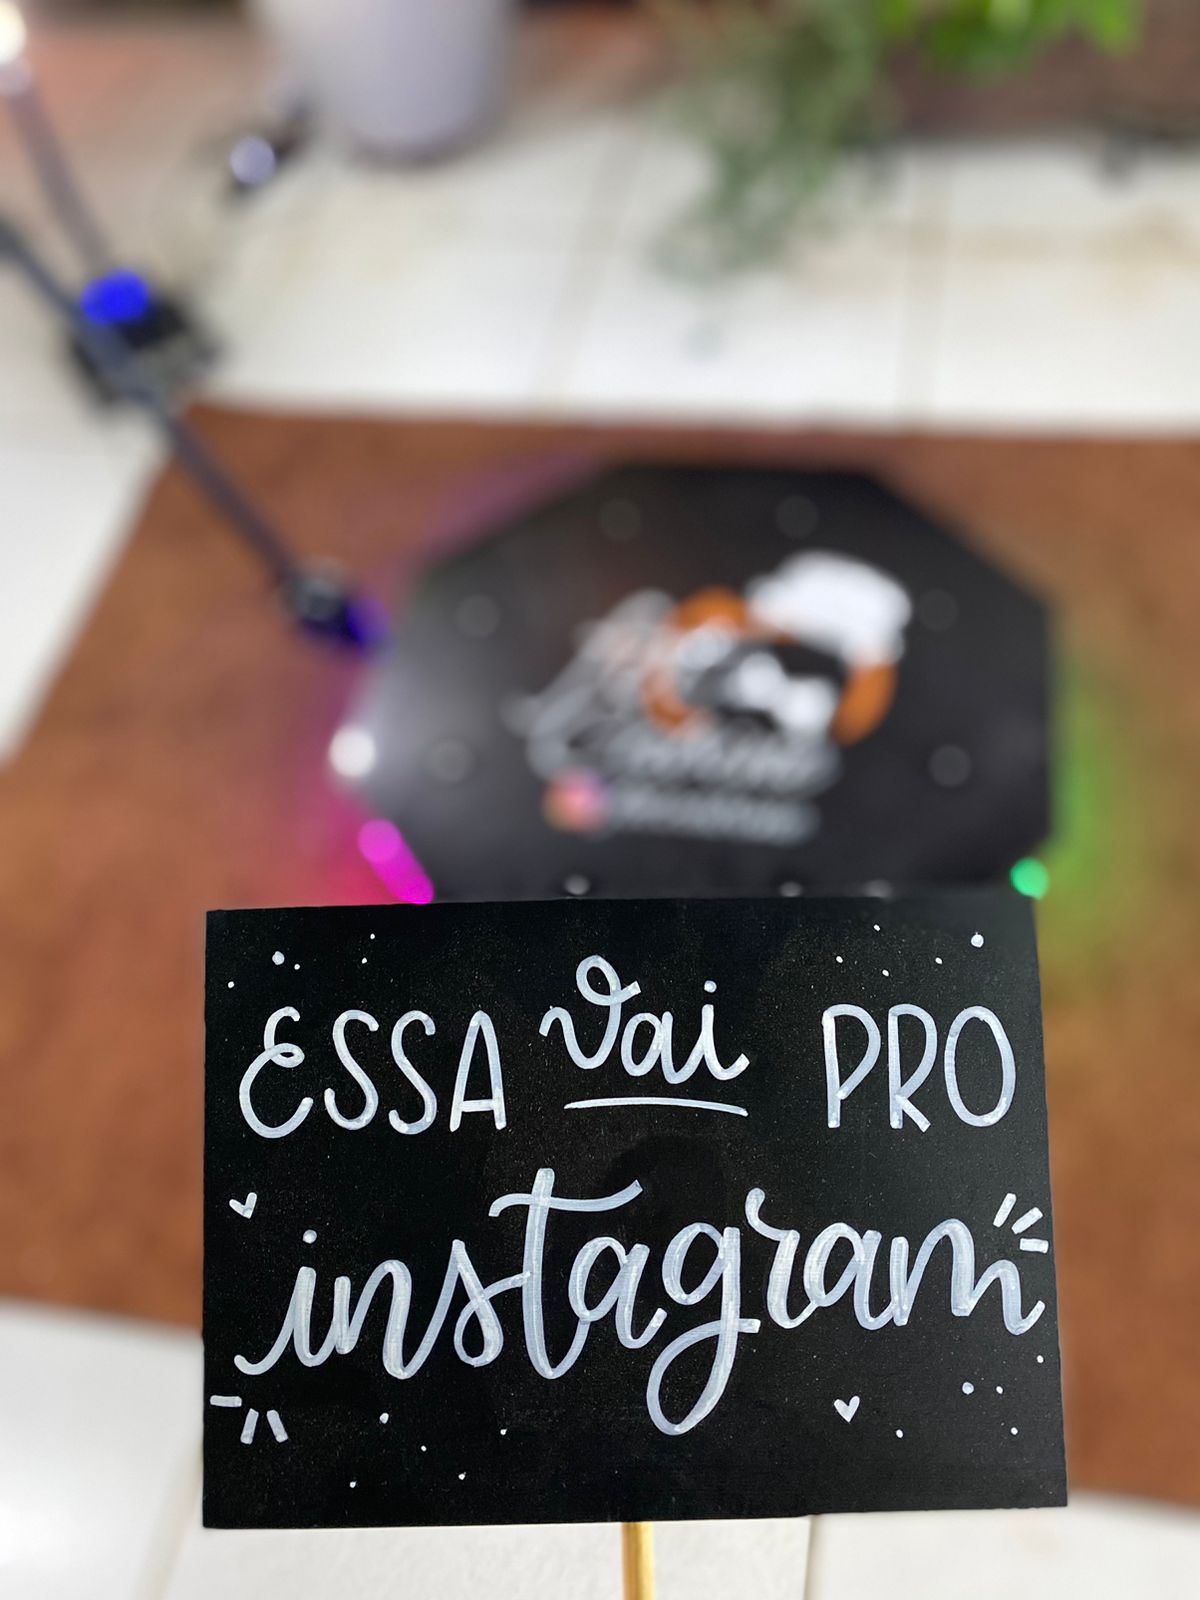 ESSA vai PRO
instagram